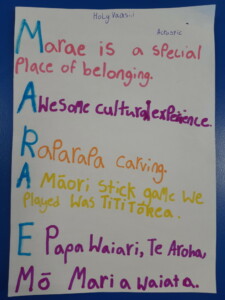 Marae is a special
place of belonging.
Awesome cultural experience.
Raparapa carving.
A Māori stick game we
played was Tītī Tōkea.
E Papa Waiari, Te Aroha,
Mō Maria waiata.